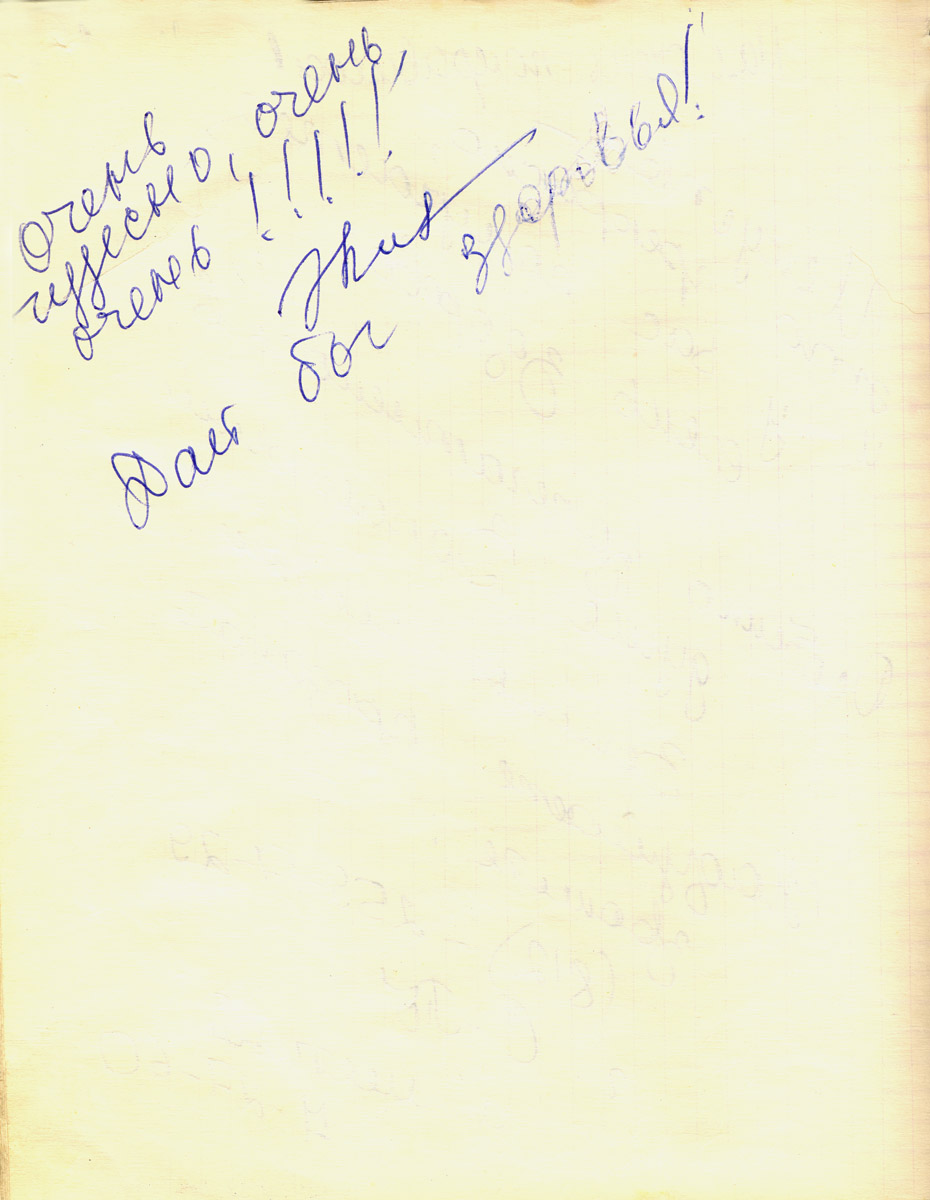 Очень
чудесно, очень,
очень !!!!!
Дает бог здоровья!